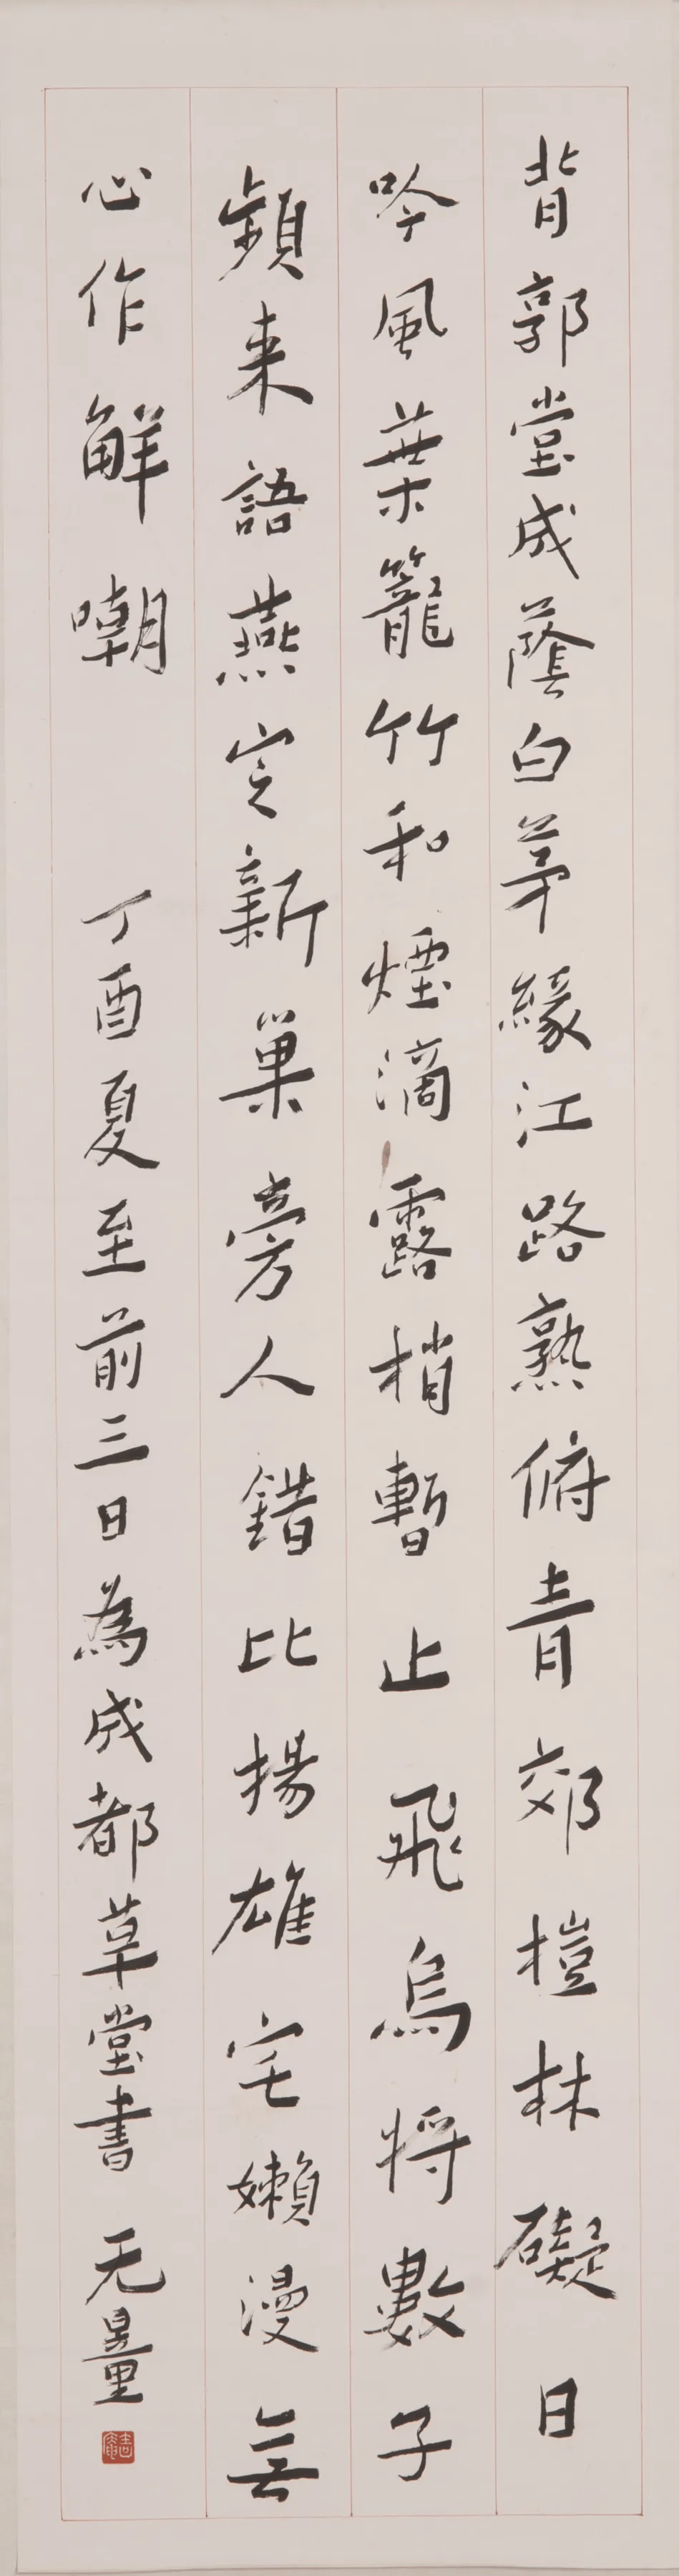 背郭堂成蔭白茅緣江路熟俯青郊榿林礙日
吟風葉籠竹和煙滴露梢暫止飛烏將數子
頻来語燕定新巢旁人錯比揚雄宅嬾漫無
心作解嘲　丁酉夏至前三日為成都草堂書　无量